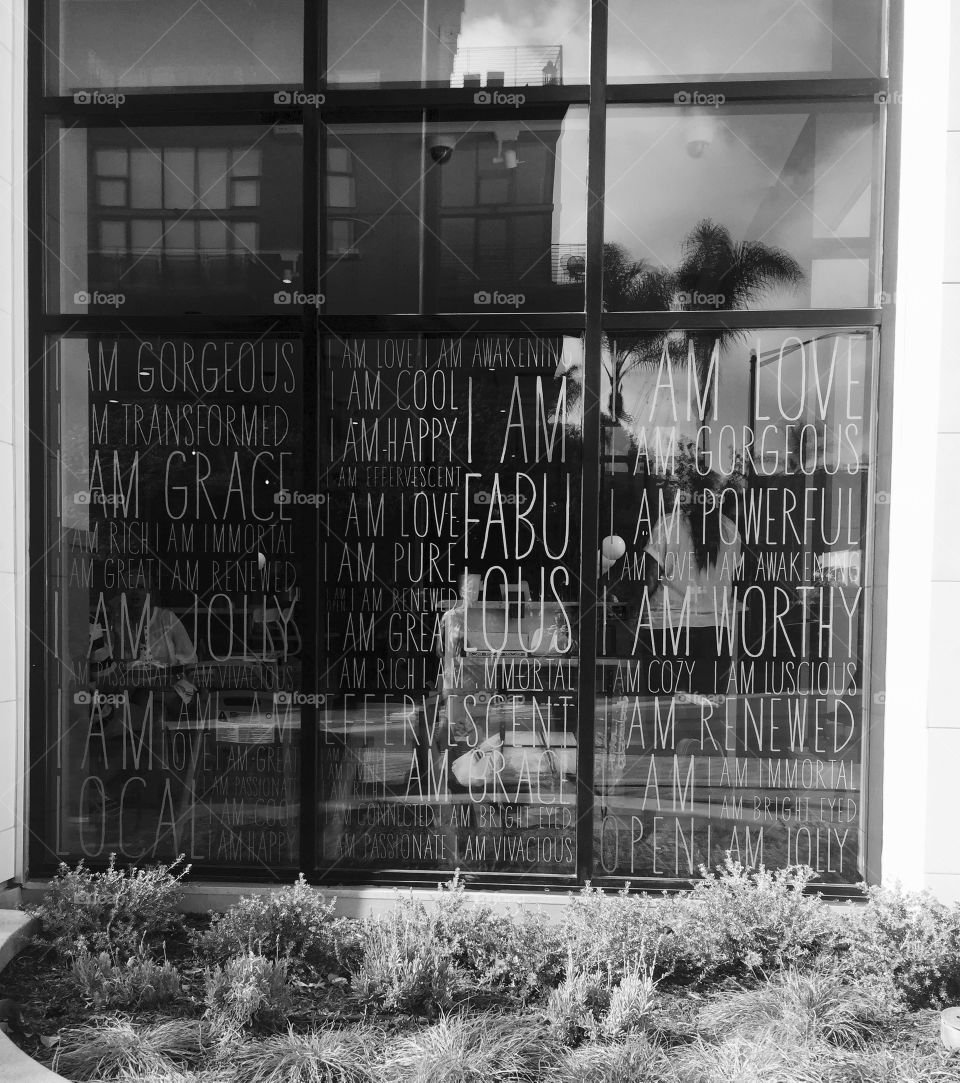 I AM GORGEOUS
AM TRANSFORMED
I AM GRACE
I AM RICH I AM IMMORTAL
I AM GREAT I AM RENEWED
I AM JOLLY
I AM PASSIONATE I AM VIVACIOUS
I AM I AM I AM
LOVE I AM GREAT
I AM PASSIONATE
LOCAL
I AM COOL
I AM HAPPY
I AM LOVE I AM AWAKENING
I AM COOL
I AM HAPPY
I AM EFFERVESCENT
I AM LOVE
I AM PURE
I AM
FABU
LOUS
I AM OPEN
I AM RENEWED
I AM GREAT
I AM RICH I AM IMMORTAL
EFFERVESCENT
I AM GRACE
I AM CONNECTED I AM BRIGHT EYED
I AM PASSIONATE I AM VIVACIOUS
I AM LOVE
I AM GORGEOUS
I AM POWERFUL
I AM LOVE I AM AWAKENING
I AM WORTHY
I AM COZY I AM LUSCIOUS
I AM RENEWED
I AM
OPEN
I AM IMMORTAL
I AM BRIGHT EYED
I AM JOLLY
foap